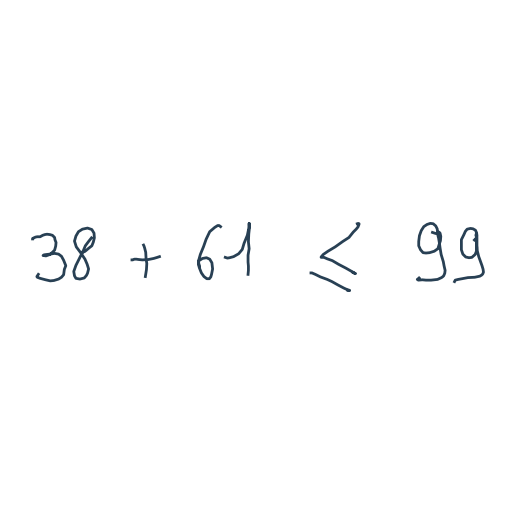 38 + 61 ≤ 99